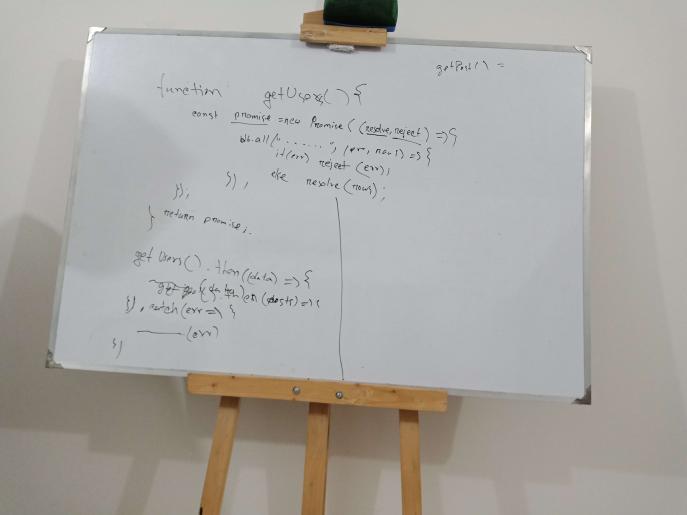 getPost() =
function getUsers() {
const promise = new Promise( (resolve, reject) => {
db.all("......", (err, rows) => {
if(err) reject (err);
else resolve (rows);
}),
});
return promise;
}
get Users() . then((data) => {
(posts) => {
}) . catch(err => {
(err)
})